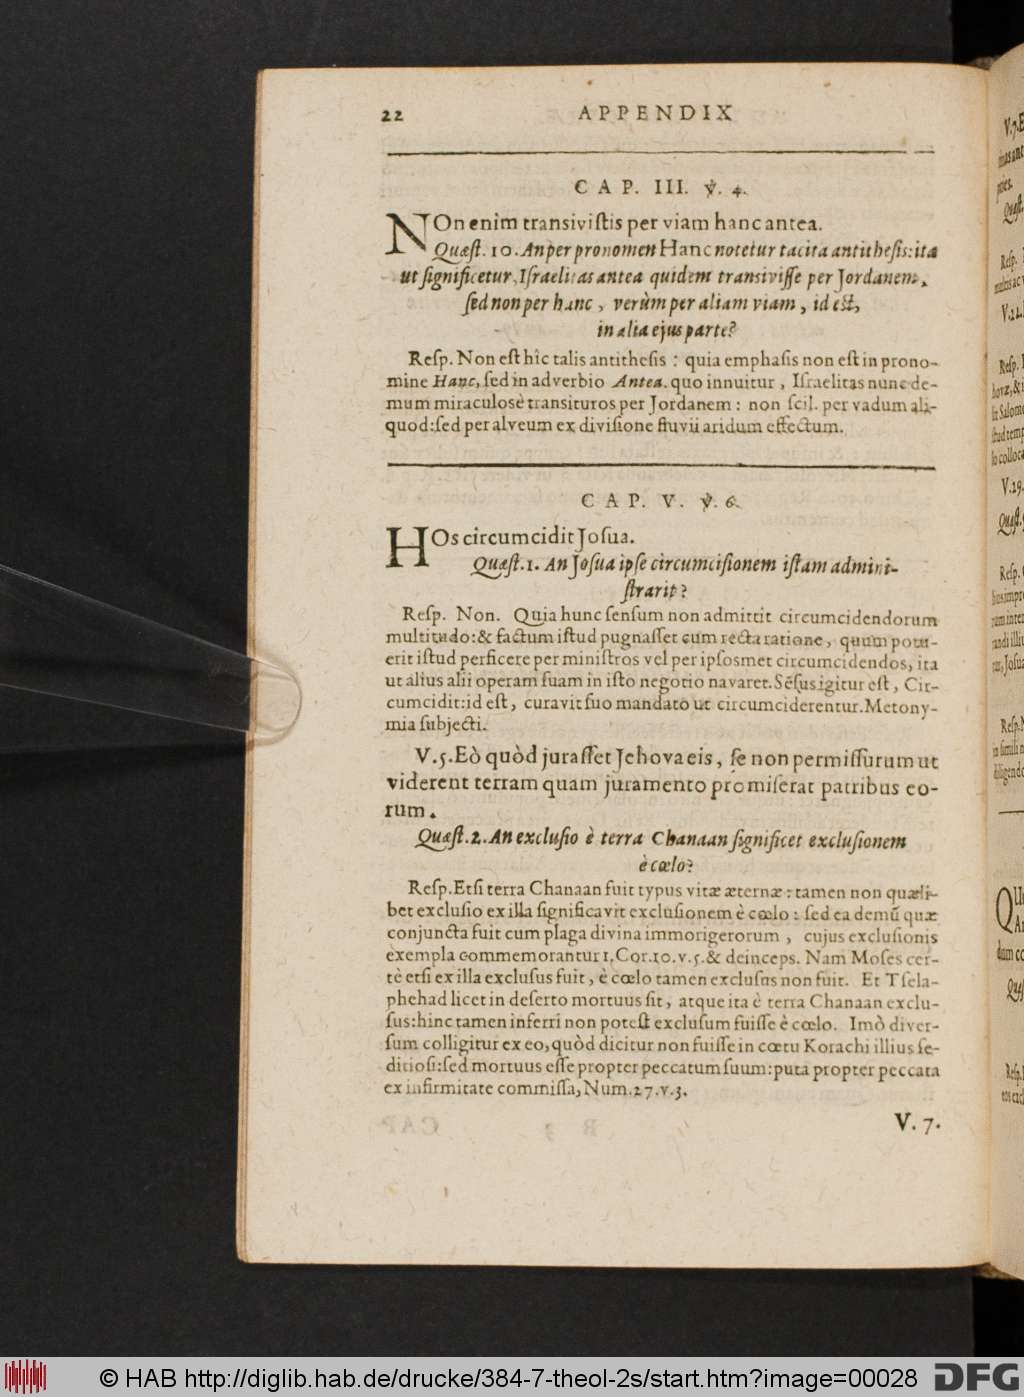 22 APPENDIX
CAP. III. ℣. 4.
NOn enim transiviſtis per viam hanc antea.
Quæſt. 10. An per pronomen Hanc notetur tacita antitheſis: ita
ut ſignificetur, Iſraelitas antea quidem transiviſſe per Jordanem,
ſed non per hanc, verùm per aliam viam, id eſt,
in alia ejus parte?
Reſp. Non eſt hîc talis antitheſis: quia emphaſis non eſt in prono-
mine Hanc, ſed in adverbio Antea. quo innuitur, Iſraelitas nunc de-
mum miraculosè transituros per Jordanem: non ſcil. per vadum ali-
quod: ſed per alveum ex diviſione fluvii aridum effectum.
CAP. V. ℣. 6.
HOs circumcidit Joſua.
Quæſt. 1. An Joſua ipſe circumciſionem iſtam admini-
ſtrarit?
Reſp. Non. Quia hunc ſenſum non admittit circumcidendorum
multitudo: & factum iſtud pugnaſſet cum recta ratione, quum potu-
erit iſtud perficere per miniſtros vel per ipſosmet circumcidendos, ita
ut alius alii operam ſuam in iſto negotio navaret. Sẽſus igitur eſt, Cir-
cumcidit: id eſt, curavit ſuo mandato ut circumciderentur. Metony-
mia ſubjecti.
V. 5. Eò quòd juraſſet Jehova eis, ſe non permiſſurum ut
viderent terram quam juramento promiſerat patribus eo-
rum.
Quæſt. 2. An excluſio è terra Chanaan ſignificet excluſionem
è cœlo?
Reſp. Etſi terra Chanaan fuit typus vitæ æternæ: tamen non quæli-
bet excluſio ex illa ſignificavit excluſionem è cœlo: ſed ea demũ quæ
conjuncta fuit cum plaga divina immorigerorum, cujus excluſionis
exempla commemorantur 1. Cor. 10. v. 5. & deinceps. Nam Moſes cer-
tè etſi ex illa excluſus fuit, è cœlo tamen excluſus non fuit. Et Tſela-
phehad licet in deſerto mortuus ſit, atque ita è terra Chanaan exclu-
ſus: hinc tamen inferri non poteſt excluſum fuiſſe è cœlo. Imò diver-
ſum colligitur ex eo, quòd dicitur non fuiſſe in cœtu Korachi illius ſe-
ditioſi: ſed mortuus eſſe propter peccatum ſuum: puta propter peccata
ex infirmitate commiſſa, Num. 27. v. 3.
V. 7.
© HAB http://diglib.hab.de/drucke/384-7-theol-2s/start.htm?image=00028
DFG